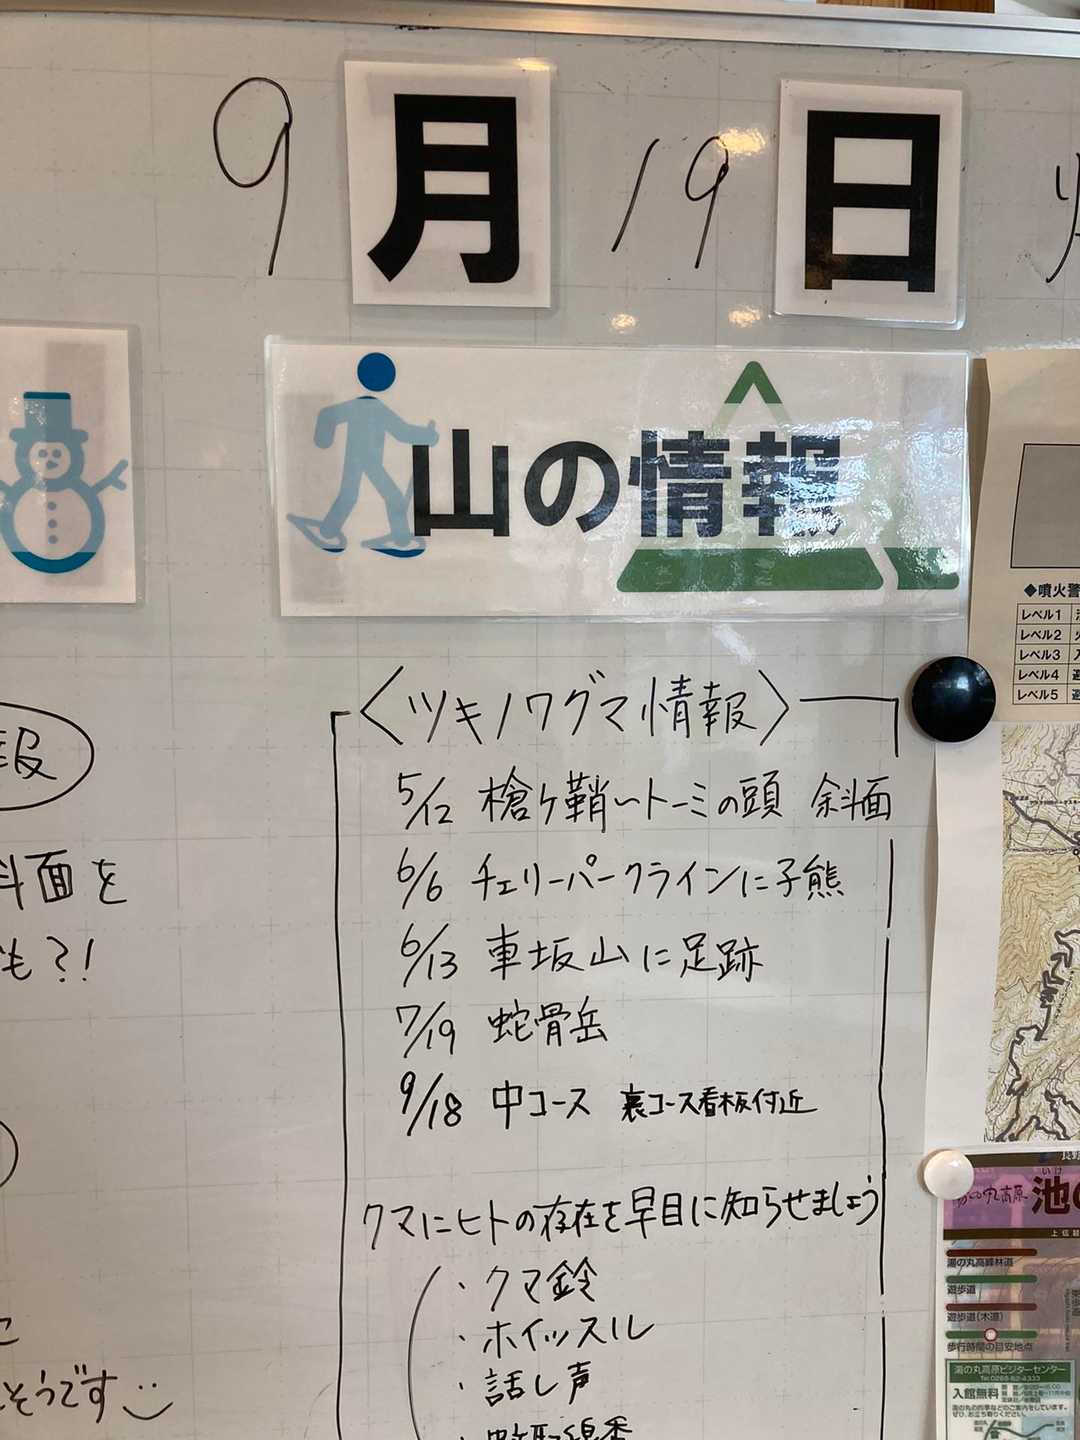 9月19日
山の情報
〈ツキノワグマ情報〉
5/12 槍ケ鞘〜トーミの頭 斜面
6/6 チェリーパークラインに子熊
6/13 車坂山に足跡
7/19 蛇骨岳
9/18 中コース 裏コース看板付近
クマにヒトの存在を早目に知らせましょう
・クマ鈴
・ホイッスル
・話し声
報
斜面を
も?!
そうです
◆噴火警
レベル1
レベル2
レベル3
レベル4
レベル5
湯の丸高原
いけ
池の
湯の丸高峰林道
遊歩道
遊歩道(木道)
歩行時間の目安地点
湯の丸高原ビジターセンター
入館無料